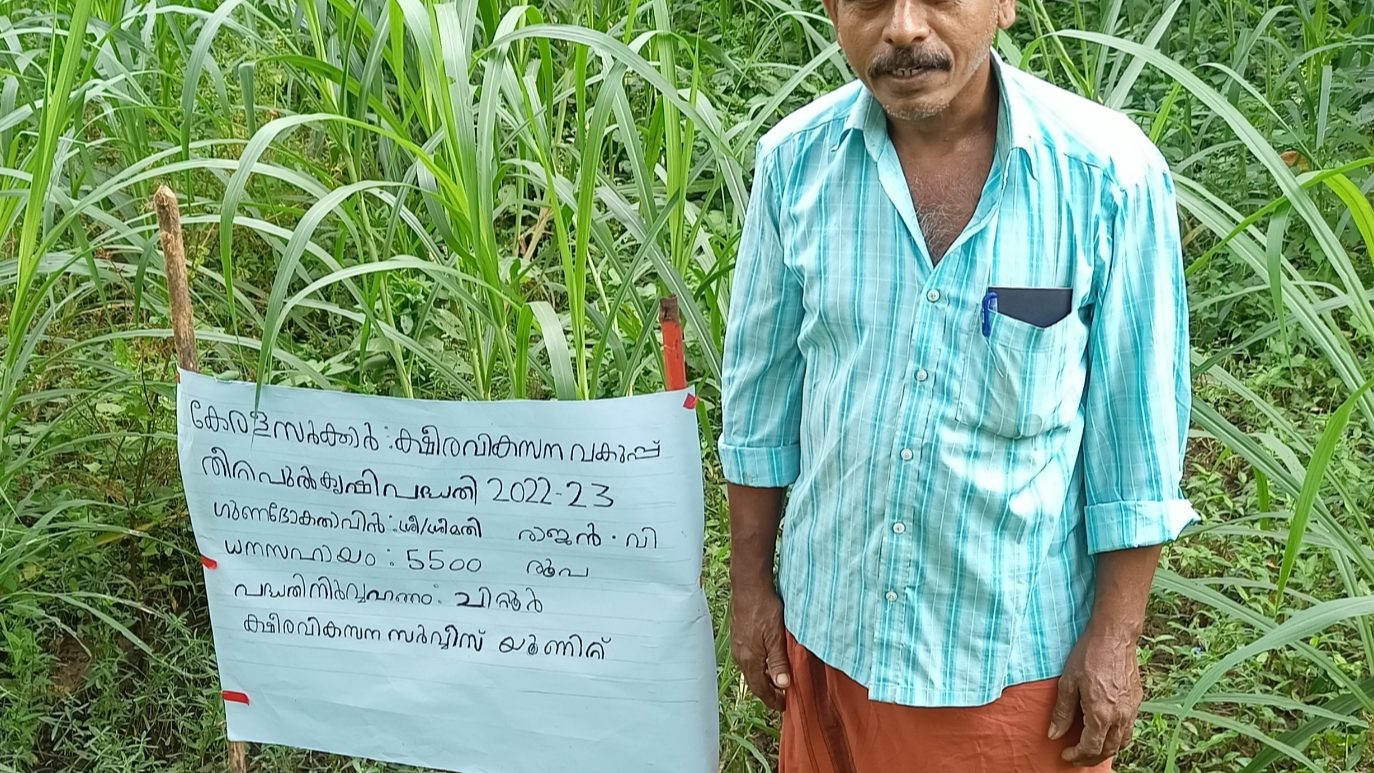 കേരള സർക്കാർ : ക്ഷീരവികസന വകുപ്പ്
തീറ്റപുൽകൃഷി പദ്ധതി 2022-23
ഗുണഭോക്താവിൻ : ശ്രീ/ശ്രീമതി രാജൻ . വി
ധനസഹായം : 5500 രൂപ
പദ്ധതിനിർവ്വഹണം : ചിറ്റൂർ
ക്ഷീരവികസന സർവ്വീസ് യൂണിറ്റ്